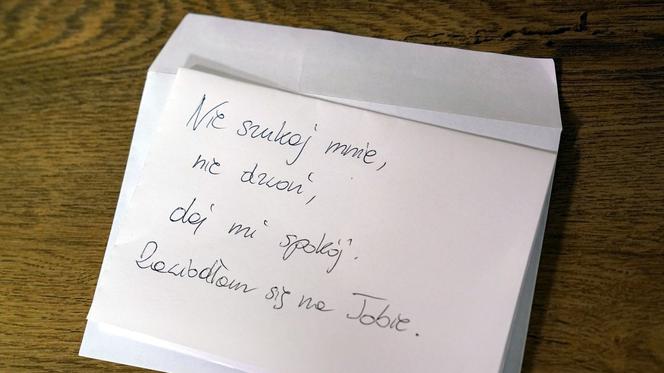 Nie szukaj mnie,
nie dzwoń,
daj mi spokój.
Zawiodłam się na Tobie.